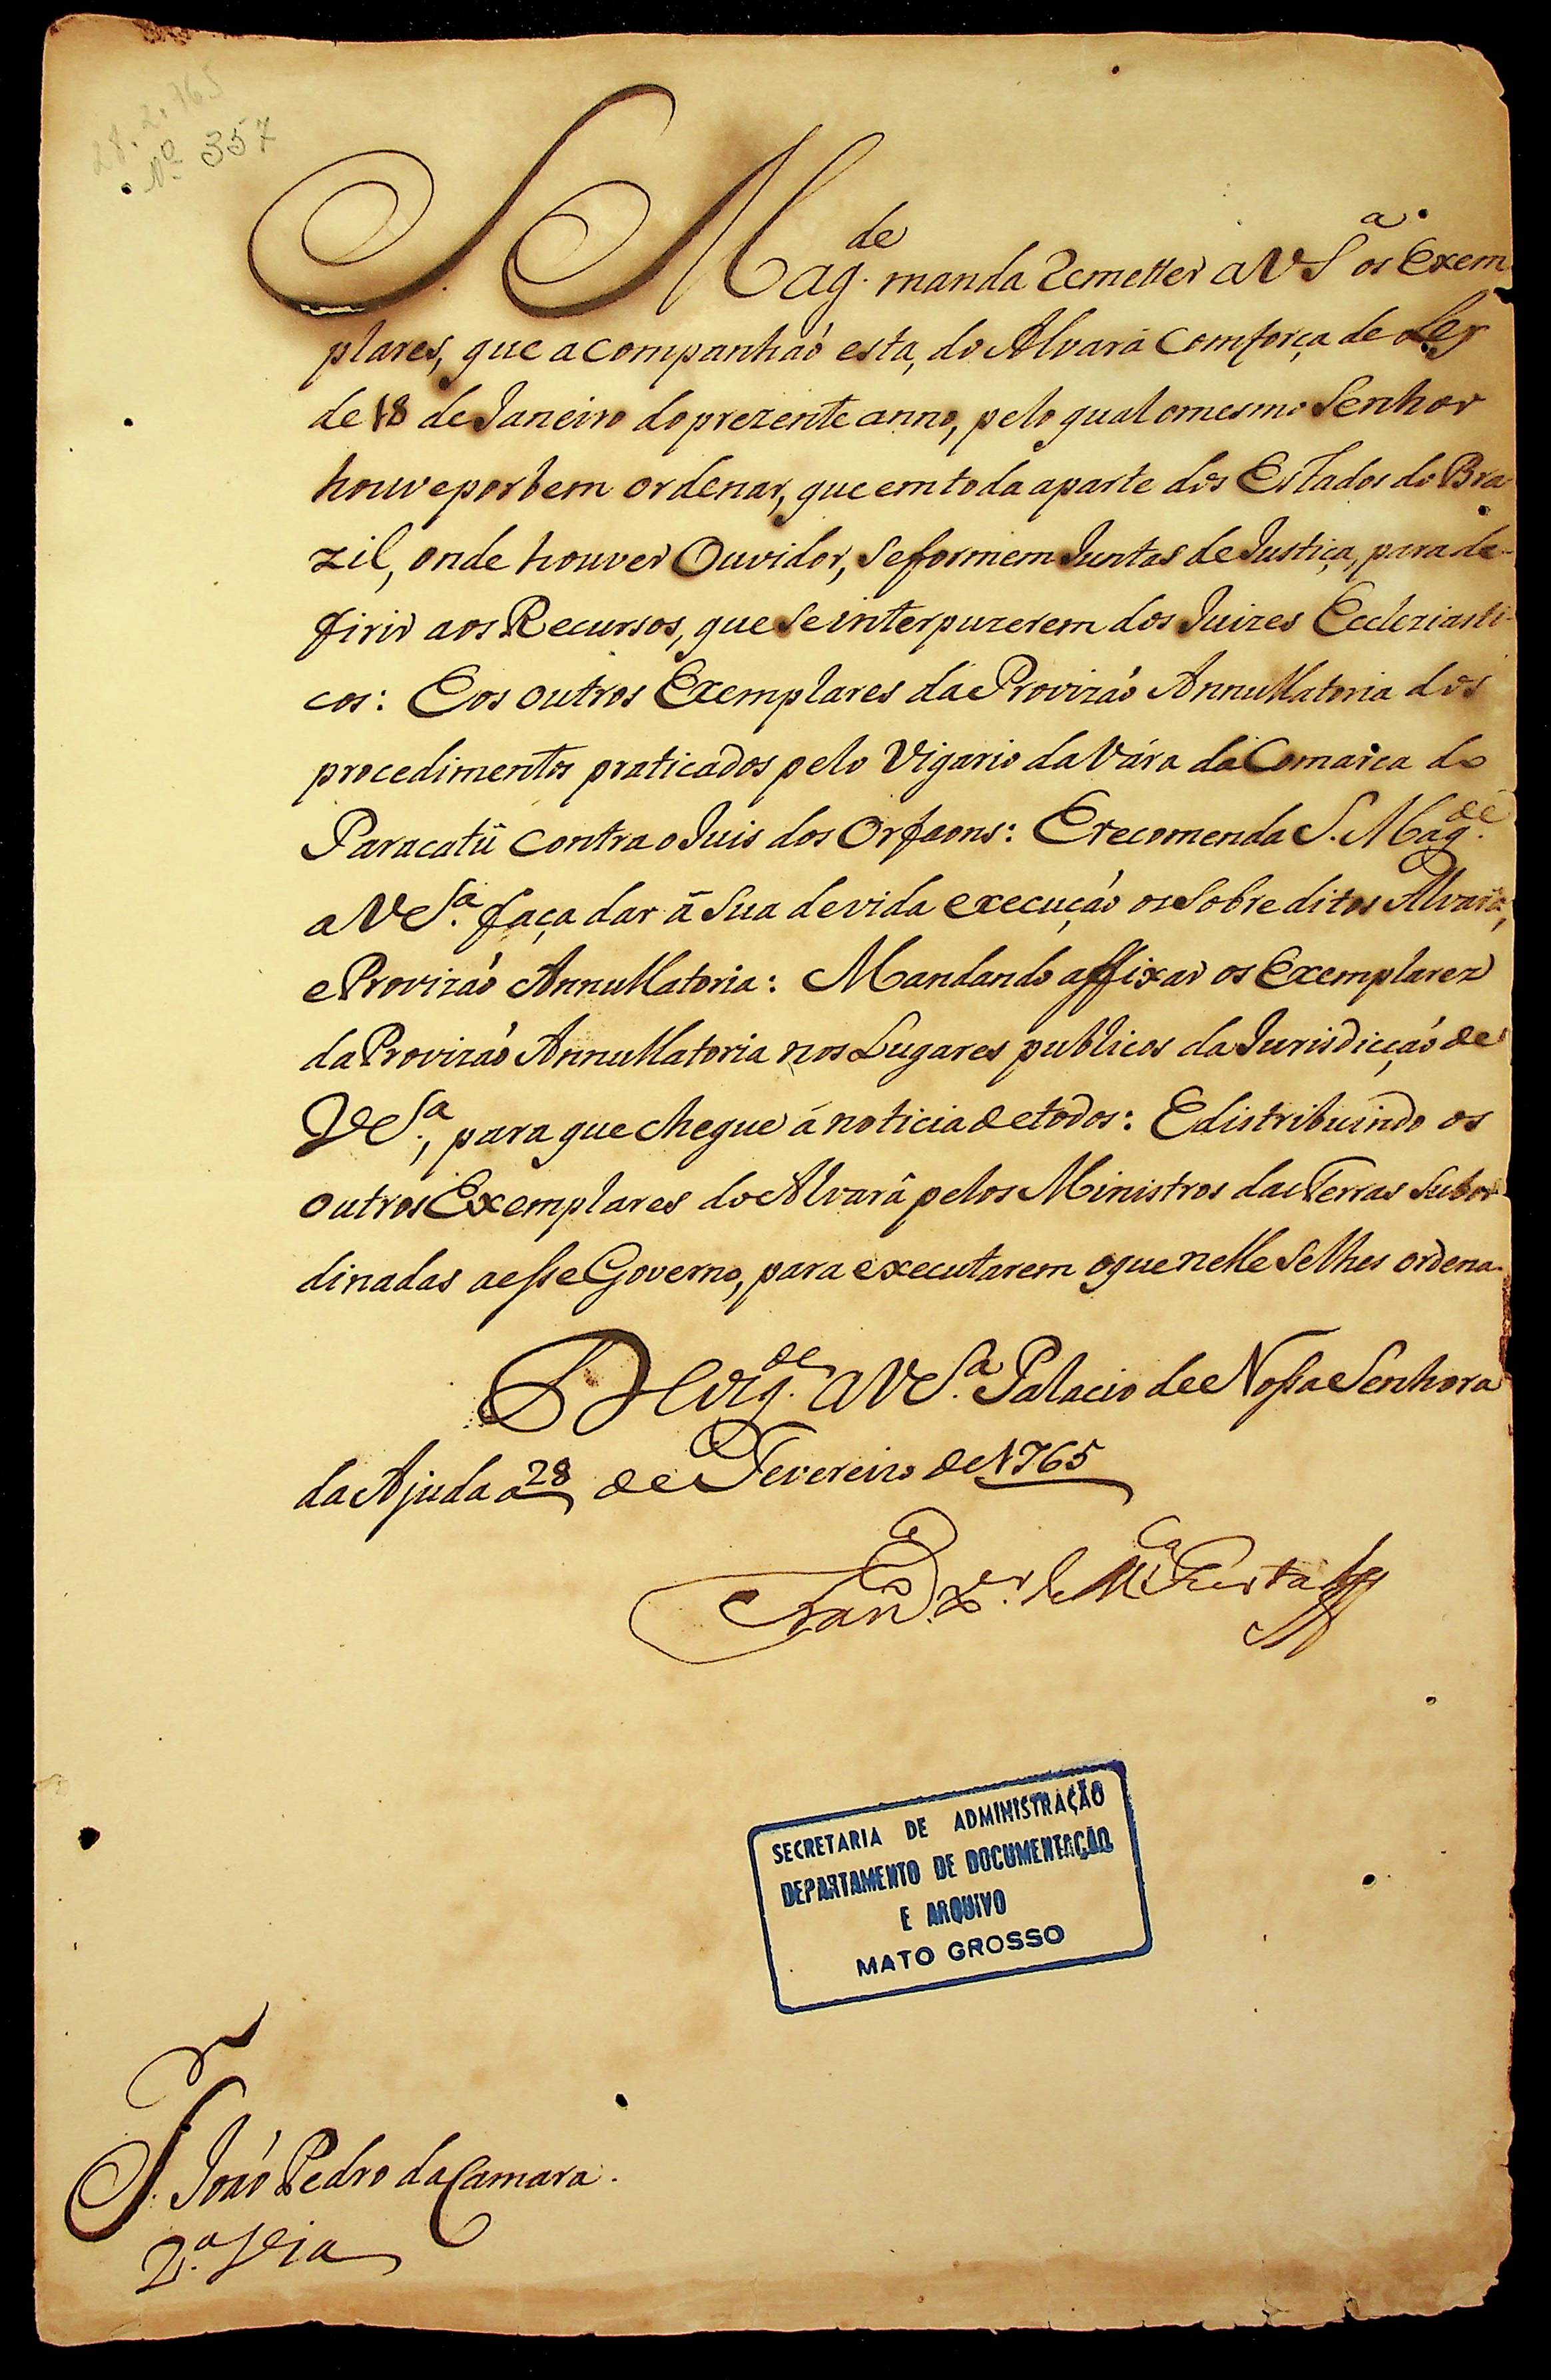 28.2.765
Nº 357
S. Magde. manda Remetter a VSa. os Exem
plares, que acompanhaó esta, do Alvará com força de Ley
de 18 de Janeiro do prezente anno, pelo qual o mesmo Senhor
houve por bem ordenar, que em toda a parte dos Estados do Bra-
zil, onde houver Ouvidor, se formem Juntas de Justiça, para de-
firir aos Recursos, que se interpuzerem dos Juizes Eccleziasti-
cos: E os outros Exemplares da Provizaó Annullatoria dos
procedimentos praticados pelo Vigario da Vára da Comarca do
Paracatû contra o Juis dos Orfaons: E recomenda S. Magde.
a VSa. faça dar â Sua devida execuçaó os sobreditos Alvarâ,
e Provizaó Annullatoria: Mandando affixar os Exemplarez
da Provizaó Annullatoria nos Lugares publicos da Jurisdicçaó de
VSa., para que chegue á noticia de todos: E distribuindo os
outros Exemplares do Alvarâ pelos Ministros das Terras subor-
dinadas a esse Governo, para executarem o que nelle se lhes ordena.
Ds. gde. a VSa. Palacio de Nossa Senhora
da Ajuda a 28 de Fevereiro de 1765
Franco. Xer. de Mça. Furtado
SECRETARIA DE ADMINISTRAÇÃO
DEPARTAMENTO DE DOCUMENTAÇÃO
E ARQUIVO
MATO GROSSO
Sr. Joaó Pedro da Camara.
2.a Via